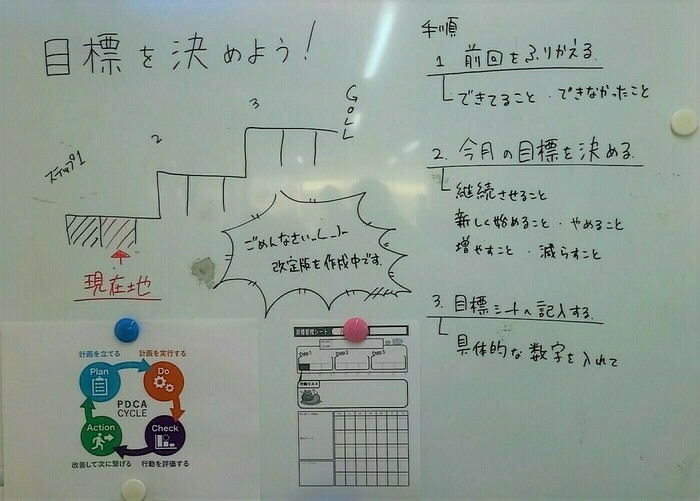 目標を決めよう!
ステップ1
2
3
GOLL
現在地
ごめんなさいm(_ _)m
改定版を作成中です。
手順
1 前回をふりかえる.
できてること・できなかったこと
2. 今月の目標を決める.
継続させること
新しく始めること・やめること
増やすこと・減らすこと
3. 目標シートへ記入する.
具体的な数字を入れて
計画を立てる
計画を実行する
Plan
Do
PDCA
CYCLE
Action
Check
改善して次に繋げる
行動を評価する
目標管理シート